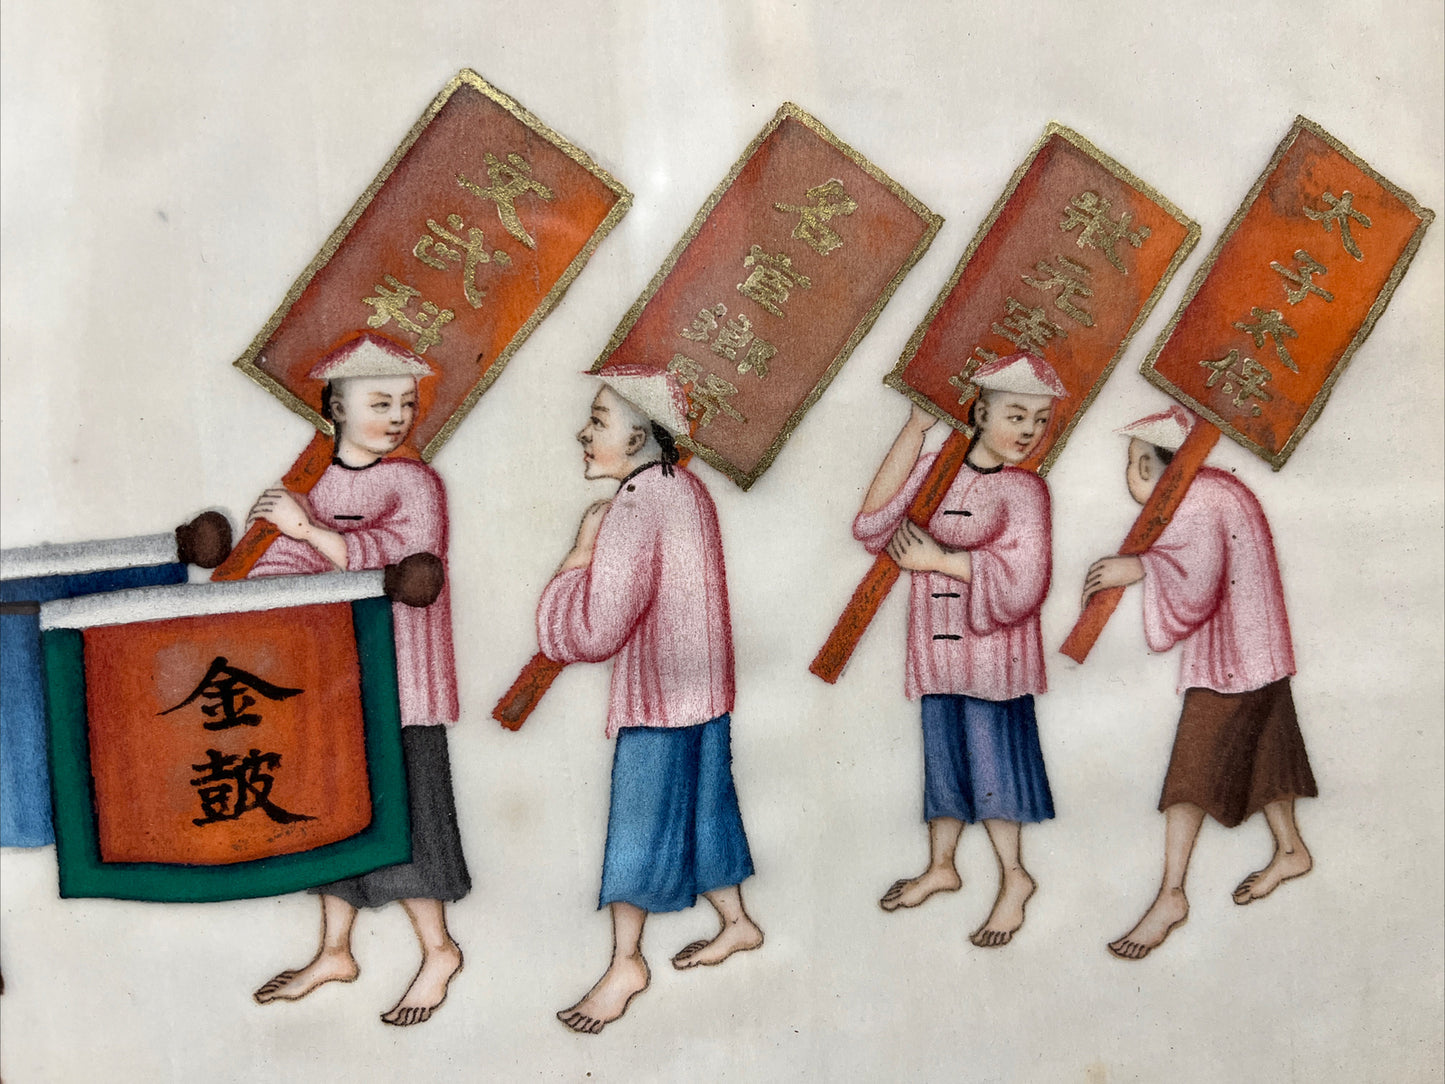 金鼓
文武科
名宦鄉賢
狀元宰
太子太保